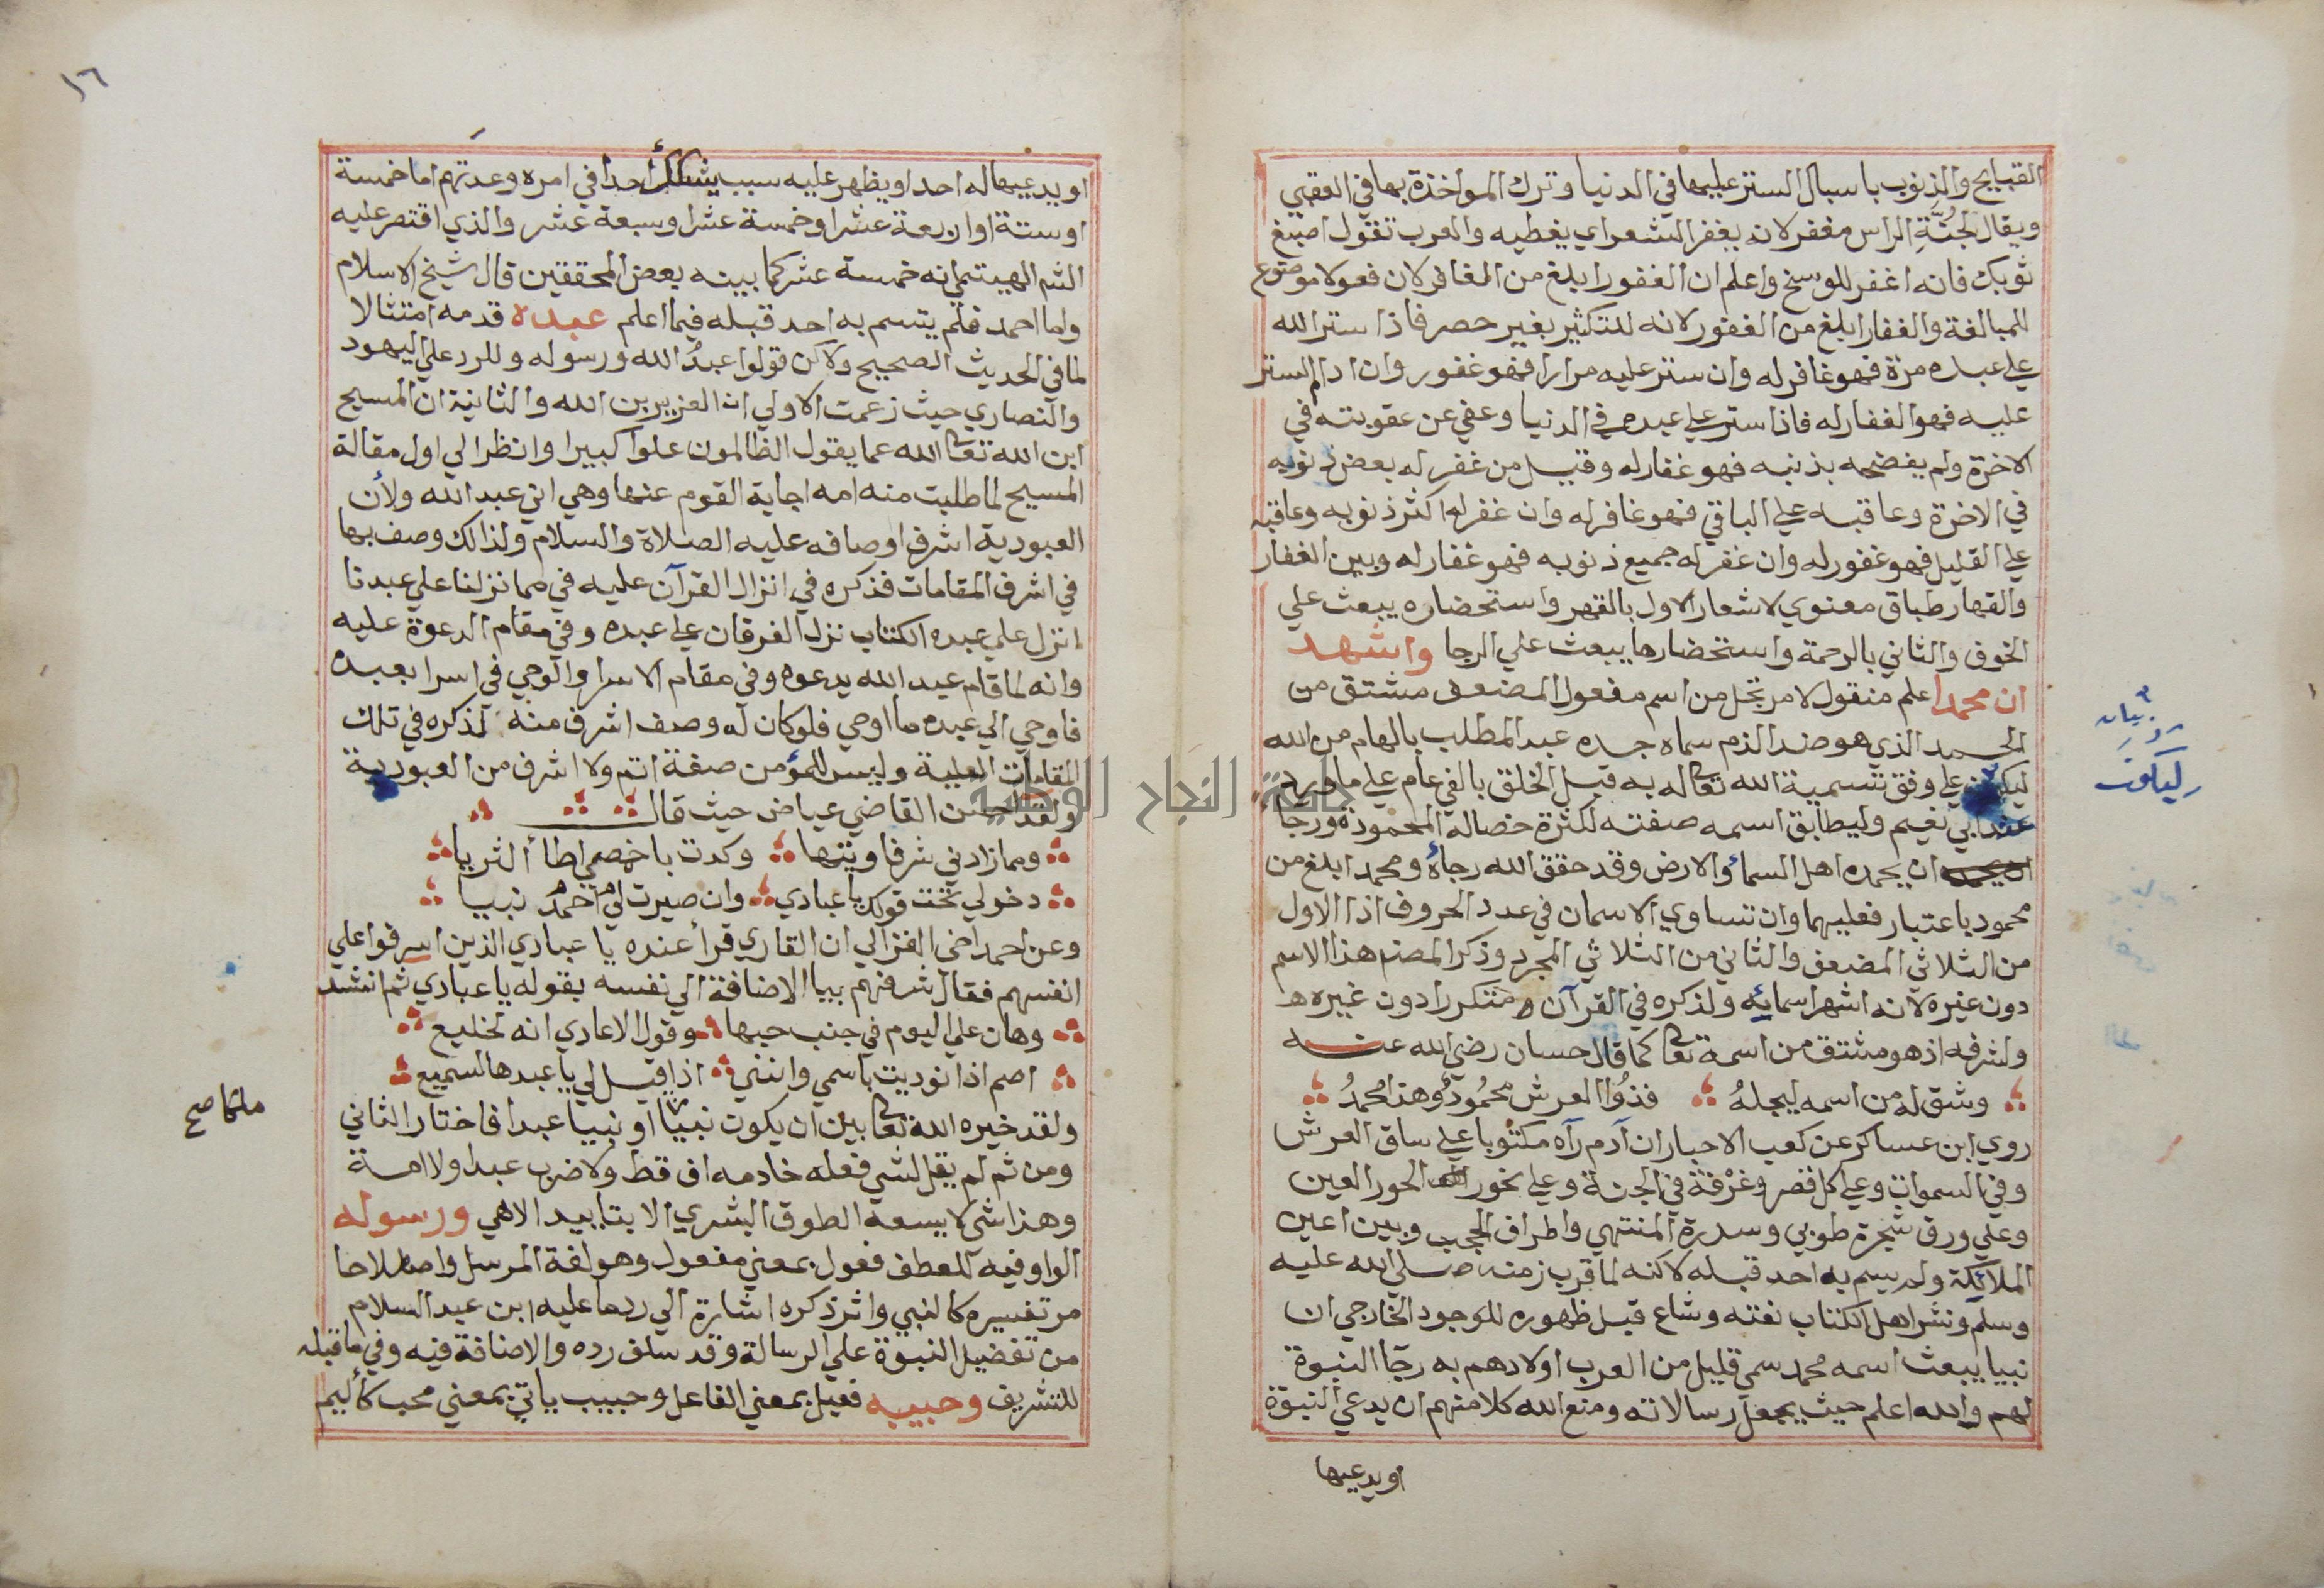 القبايح والذنوب باسبال الستر عليها في الدنيا وترك المواخذة بها في العقبي
ويقال لجُنَّةِ الراس مغفر لانه يغفر الشعر اي يغطيه والعرب تقول اصبغ
ثوبك فانه اغفر للوسخ واعلم ان الغفور ابلغ من الغافر لان فعولا موضوع
للمبالغة والغفار ابلغ من الغفور لانه للتكثير بغير حصر فاذا ستر الله
علي عبده مرة فهو غافر له وان ستر عليه مرارا فهو غفور وان ادام الستر
عليه فهو الغفار له فاذا ستر علي عبده في الدنيا وعفي عن عقوبته في
الاخرة ولم يفضحه بذنبه فهو غفار له وقيل من غفر له بعض ذنوبه
في الاخرة وعاقبه علي الباقي فهو غافر له وان غفر له اكثر ذنوبه وعاقبه
علي القليل فهو غفور له وان غفر له جميع ذنوبه فهو غفار له وبين الغفار
والقهار طباق معنوي لاشعار الاول بالقهر واستحضاره يبعث علي
الخوف والثاني بالرحمة واستحضارها يبعث علي الرجا واشهد
ان محمدا علم منقول لا مرتجل من اسم مفعول المضعف مشتق من
الحمد الذي هو ضد الذم سماه جده عبد المطلب بالهام من الله
ليكون علي وفق تسمية الله تعالي له به قبل الخلق بالفي عام علي ما ورد
عند ابي نعيم وليطابق اسمه صفته لكثرة خصاله المحمودة ورجا
ان يحمده اهل السماء والارض وقد حقق الله رجاءه ومحمد ابلغ من
محمود باعتبار فعليهما وان تساوي الاسمان في عدد الحروف اذ الاول
من الثلاثي المضعف والثاني من الثلاثي المجرد وذكر المصنم هذا الاسم
دون غيره لانه اشهر اسمائه ولذكره في القرآن متكررا دون غيره
ولشرفه اذ هو مشتق من اسمه تعالي كما قال حسان رضي الله عنه
وشق له من اسمه ليجلهُ فذُوا العرش محمُودٌ وهذا محمدُ
روي ابن عساكر عن كعب الاحبار ان آدم رآه مكتوبا علي ساق العرش
وفي السموات وعلي كل قصر وغرفة في الجنة وعلي نحور الحور العين
وعلي ورق شجرة طوبي وسدرة المنتهي واطراف الحجب وبين اعين
الملائكة ولم يسم به احد قبله لاكنه لما قرب زمنه صلي الله عليه
وسلم ونشر اهل الكتاب نعته وشاع قبل ظهوره للوجود الخارجي ان
نبيا يبعث اسمه محمد سمي قليل من العرب اولادهم به رجآ النبوة
لهم والله اعلم حيث يجعل رسالاته ومنع الله كلا منهم ان يدعي النبوة
او يدعيها
بيان
ليكون
١٦
او يدعيها له احد او يظهر عليه سبب يشكك احدا في امره وعدتهم اما خمسة
او ستة او اربعة عشر او خمسة عشر او سبعة عشر والذي اقتصر عليه
الشم الهيتمي انه خمسة عشر كما بينه بعض المحققين قال شيخ الاسلام
واما احمد فلم يتسم به احد قبله فيما اعلم عبده قدمه امتثالا
لما في الحديث الصحيح ولاكن قولوا عبدُ الله ورسوله وللرد علي اليهود
والنصاري حيث زعمت الاولي ان العزير بن الله والثانية ان المسيح
ابن الله تعالي الله عما يقول الظالمون علوا كبيرا وانظر الي اول مقالة
المسيح لما طلبت منه امه اجابة القوم عنها وهي اني عبد الله ولأن
العبودية اشرف اوصافه عليه الصلاة والسلام ولذالك وصف بها
في اشرف المقامات فذكره في انزال القرآن عليه في مما نزلنا علي عبدنا
انزل علي عبده الكتاب نزل الفرقان علي عبده وفي مقام الدعوة عليه
وانه لما قام عبد الله يدعوه وفي مقام الاسرا والوحي في اسرا بعبده
فاوحي الي عبده ما اوحي فلو كان له وصف اشرف منه لذكره في تلك
المقامات العلية وليس للمؤمن صفة اتم ولا اشرف من العبودية
ولقد احسن القاضي عياض حيث قال
ومما زادني شرفا وتيها وكدت باخمصي اطأ الثريا
دخولي تحت قولك يا عبادي وان صيرت لي احمدُ نبيا
وعن احمد اخي الغزالي ان القاري قرأ عنده يا عبادي الذين اسرفوا علي
انفسهم فقال شرفهم بيا الاضافة الي نفسه بقوله يا عبادي ثم انشد
وهان علي اليوم في جنب حبها وقول الاعادي انه لخليع
اصم اذا نوديت باسمي وانني اذا قيل لي يا عبدها لسميع
ولقد خيره الله تعالي بين ان يكون نبيا او نبيا عبدا فاختار الثاني
ومن ثم لم يقل لشي فعله خادمه اف قط ولا ضرب عبدا ولا امة
وهذا شي لا يسعه الطوق البشري الا بتاييد الاهي ورسوله
الواو فيه للعطف فعول بمعني مفعول وهو لغة المرسل واصطلاحا
مر تفسيره كالنبي واثر ذكره اشارة الي رد ما عليه ابن عبد السلام
من تفضيل النبوة علي الرسالة وقد سلف رده والاضافة فيه وفي ما قبله
للتشريف وحبيبه فعيل بمعني الفاعل وحبيب ياتي بمعني محب كأليم
ملكا صح
جامعة النجاح الوطنية